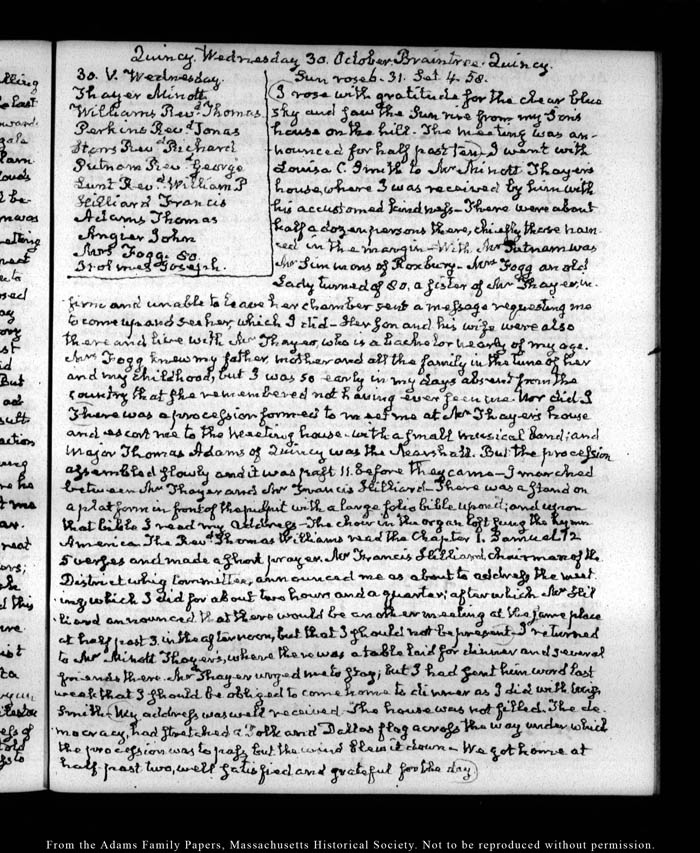 Quincy. Wednesday 30. October. Braintree. Quincy.
30. V. Wednesday.
Thayer Minott
Williams Revd. Thomas
Perkins Revd Jonas
Storrs Revd Richard
Putnam Revd. George
Lunt Revd. William P
Hilliard Francis
Adams Thomas
Angier John
Mrs Fogg. 80.
Holmes Joseph.
Sun rose 6.31. Set 4.58.
I rose with gratitude for the clear blue
sky and saw the Sun rise from my Son's
house on the hill. The meeting was an-
nounced for half past ten. I went with
Louisa C. Smith to Mr Minott Thayer's
house, where I was received by him with
his accustomed kindness. There were about
half a dozen persons there, chiefly those nam-
ed in the margin. With Mr Putnam was
Mr Simmons of Roxbury. Mrs Fogg an old
Lady turned of 80, a sister of Mr Thayer, in-
firm and unable to leave her chamber sent a message requesting me
to come up and see her, which I did. Her Son and his wife were also
there and live with Mr Thayer, who is a bachelor nearly of my age.
Mrs Fogg knew my father, mother and all the family in the time of her
and my childhood, but I was so early in my days absent from the
Country that she remembered not having ever seen me. Nor did I
There was a procession formed to meet me at Mr Thayer's house
and escort me to the Meeting house with a small musical band; and
Major Thomas Adams of Quincy was the Marshall. But the procession
assembled slowly and it was past 11. before they came. I marched
between Mr Thayer and Mr Francis Hilliard. There was a stand on
a platform in front of the pulpit with a large folio bible upon it; and upon
that bible I read my Address. The choir in the organ loft sung the hymn
America. The Revd Thomas Williams read the Chapter 1. Samuel 12
5 verses and made a short prayer. Mr Francis Hilliard, chairman of the
District whig Committee, announced me as about to address the meet-
ing, which I did for about two hours and a quarter; after which Mr Hil-
liard announced that there would be another meeting at the same place
at half past 3. in the afternoon, but that I should not be present. I returned
to Mr Minott Thayer's, where there was a table laid for dinner and several
friends there. Mr Thayer urged me to stay; but I had sent him word last
week that I should be obliged to come home to dinner as I did with
Smith. My address was well received. The house was not filled. The de-
mocracy, had stretched a Polk and Dallas flag across the way under which
the procession was to pass, but the wind blew it down. We got home at
half past two, well satisfied and grateful for the day
From the Adams Family Papers, Massachusetts Historical Society. Not to be reproduced without permission.